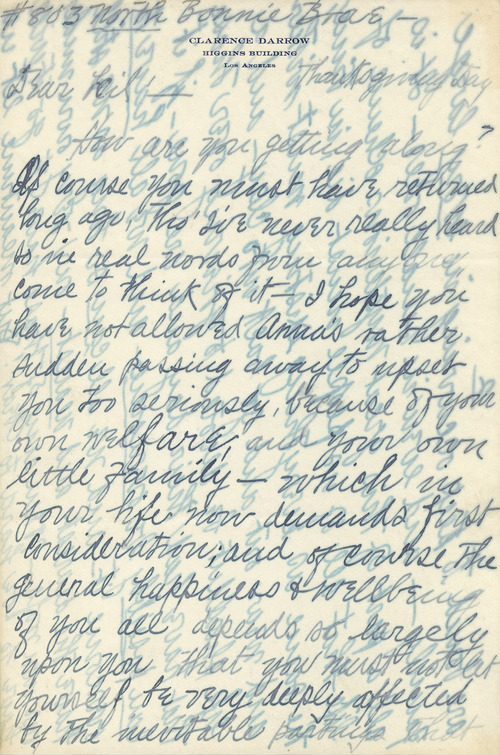 #803 North Bonnie Brae –
CLARENCE DARROW
HIGGINS BUILDING
LOS ANGELES
Thanksgiving Day
Dear —
How are you getting along?
Of course you must have returned
long ago, Tho' I've never really heard
so in real words from anyone
come to think of it – I hope you
have not allowed Anna's rather
sudden passing away to upset
you too seriously, because of your
own welfare, and your own
little family – which in
your life now demands first
consideration; and of course the
general happiness & wellbeing
of you all depends so largely
upon you that you must not let
yourself be very deeply affected
by the inevitable partings that